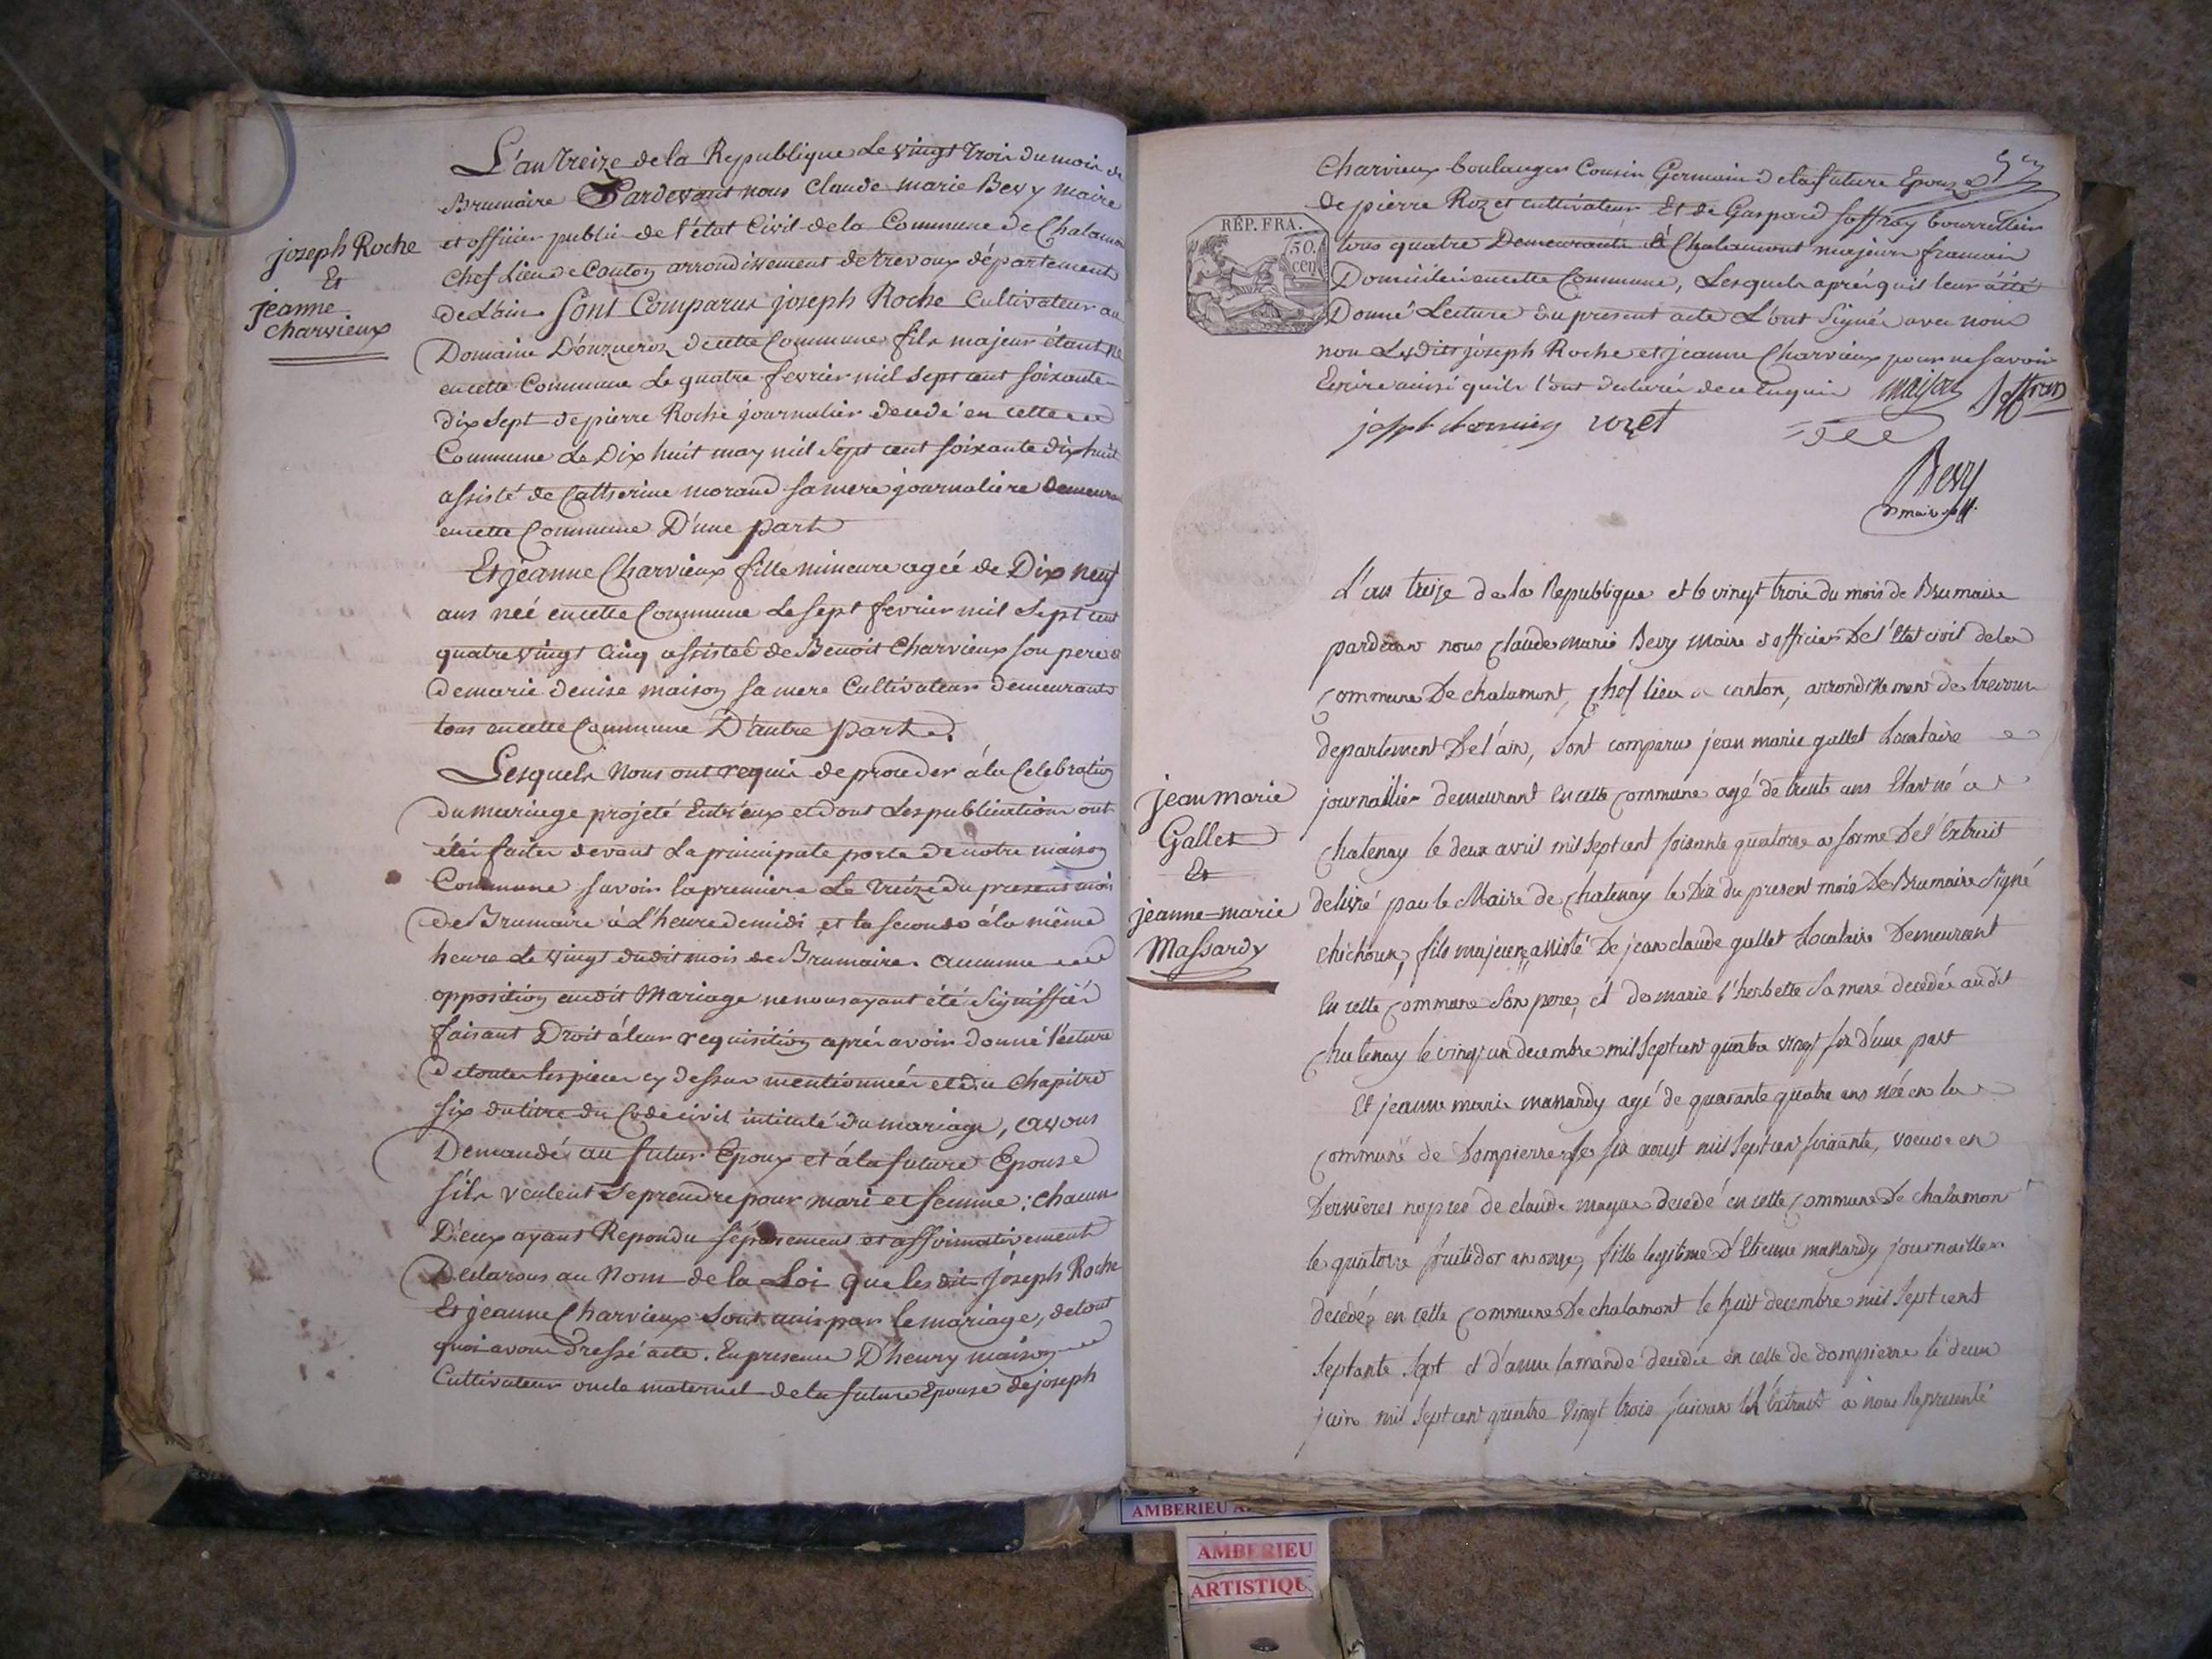 joseph Roche
Et
jeanne
charvieux
L'an treize de la Republique Le vingt trois du mois de
Brumaire Pardevant nous Claude marie Bevy maire
et officier public de l'état Civil de la Commune de Chalamo
chef Lieu de Canton arrondissement de trevoux département
de L'ain Sont Comparus joseph Roche Cultivateur au
Domaine de cette Commune fils majeur étant né
en cette Commune Le quatre fevrier mil sept cent soixante
dix sept de pierre Roche journalier decedé en cette
Commune Le Dix huit may mil sept cent soixante dix huit
assisté de Catherine morand sa mere journaliere demeuran
en cette Commune D'une part
Et jeanne Charvieux fille mineure agée de Dix neuf
ans neé en cette Commune Le sept fevrier mil sept cent
quatre vingt Cinq assistée de Benoit Charvieux son pere &
de marie denise maison sa mere Cultivateur demeurants
tous en cette Commune D'autre part.
Lesquels Nous ont requis de proceder à la Celebration
du mariage projeté Entr'eux et dont Les publications ont
étés faites devant La principale porte de notre maison
Commune savoir la premiere Le treize du present mois
de Brumaire à L'heure de midi et la seconde à la même
heure Le vingt dudit mois de Brumaire. aucune
opposition audit Mariage ne nous ayant été signiffiée
faisant Droit à leur requisition après avoir donné lecture
de toutes les pieces cy dessus mentionnées et du chapitre
six du titre du Code civil intitulé du mariage, avons
Demandé au futur Epoux et à la future Epouse
s'ils veulent se prendre pour mari et femme: chacun
D'eux ayant Repondu séparement et affirmativement
Declarons au Nom de la Loi que les dit joseph Roche
Et jeanne Charvieux sont unis par le mariage, de tout
quoi avons dressé acte. En presence D'heury maison
Cultivateur oncle maternel de la future Epouse de joseph
57
Charvieux boulanger Cousin Germain de la future Epouze
de pierre Rozet cultivateur Et de Gaspard Joffray bourrellier
RÉP. FRA.
50.
cen
tous quatre Demeurants à Chalamont majeurs francais
Domiciliés en cette Commune, Lesquels après qu'il leur a été
Donné Lecture du present acte L'ont signée avec nous
non Lesdits joseph Roche et jeanne Charvieux pour ne savoir
Ecrire ainsi qu'ils l'ont declaré de ce Enquis maison Joffray
rozet
Bevy
maire
L'an treize de la Republique et le vingt trois du mois de Brumaire
pardevan nous claude marie Bevy maire & officier De l'Etat civil de la
commune De chalamont, chef lieu de canton, arrondissement de trevoux
departement De l'ain, sont comparus jean marie gallet Locataire
jean marie
Gallet
Et
jeanne-marie
Massardy
journallier demeurant En cette commune agé de trente ans Etant né a
chatenay le deux avril mil sept cent soixante quatorze a forme De l'Extrait
delivré par le Maire de chatenay le Dix du present mois De Brumaire signé
chichoux, fils majeur, assisté De jean claude gallet Locataire Demeurant
En cette commune son pere, et de marie l'herbette sa mere decedée audit
chatenay le vingt un decembre mil sept cent quatre vingt six d'une part
Et jeanne marie massardy agé de quarante quatre ans née en la
commune de Dompierre le six aoust mil sept cent soixante, veuve en
Dernieres nopces de claude mayan decedé en cette commune De chalamont
le quatorze fruitidor an onze, fille legitime d'Etienne massardy journallier
decedé en cette commune De chalamont le huit decembre mil sept cent
septante sept et d'anne lamande decedée en celle de dompierre le deux
juin mil sept cent quatre vingt trois suivan l'Extrait a nous Representé
AMBERIEU A
AMBERIEU
ARTISTIQU